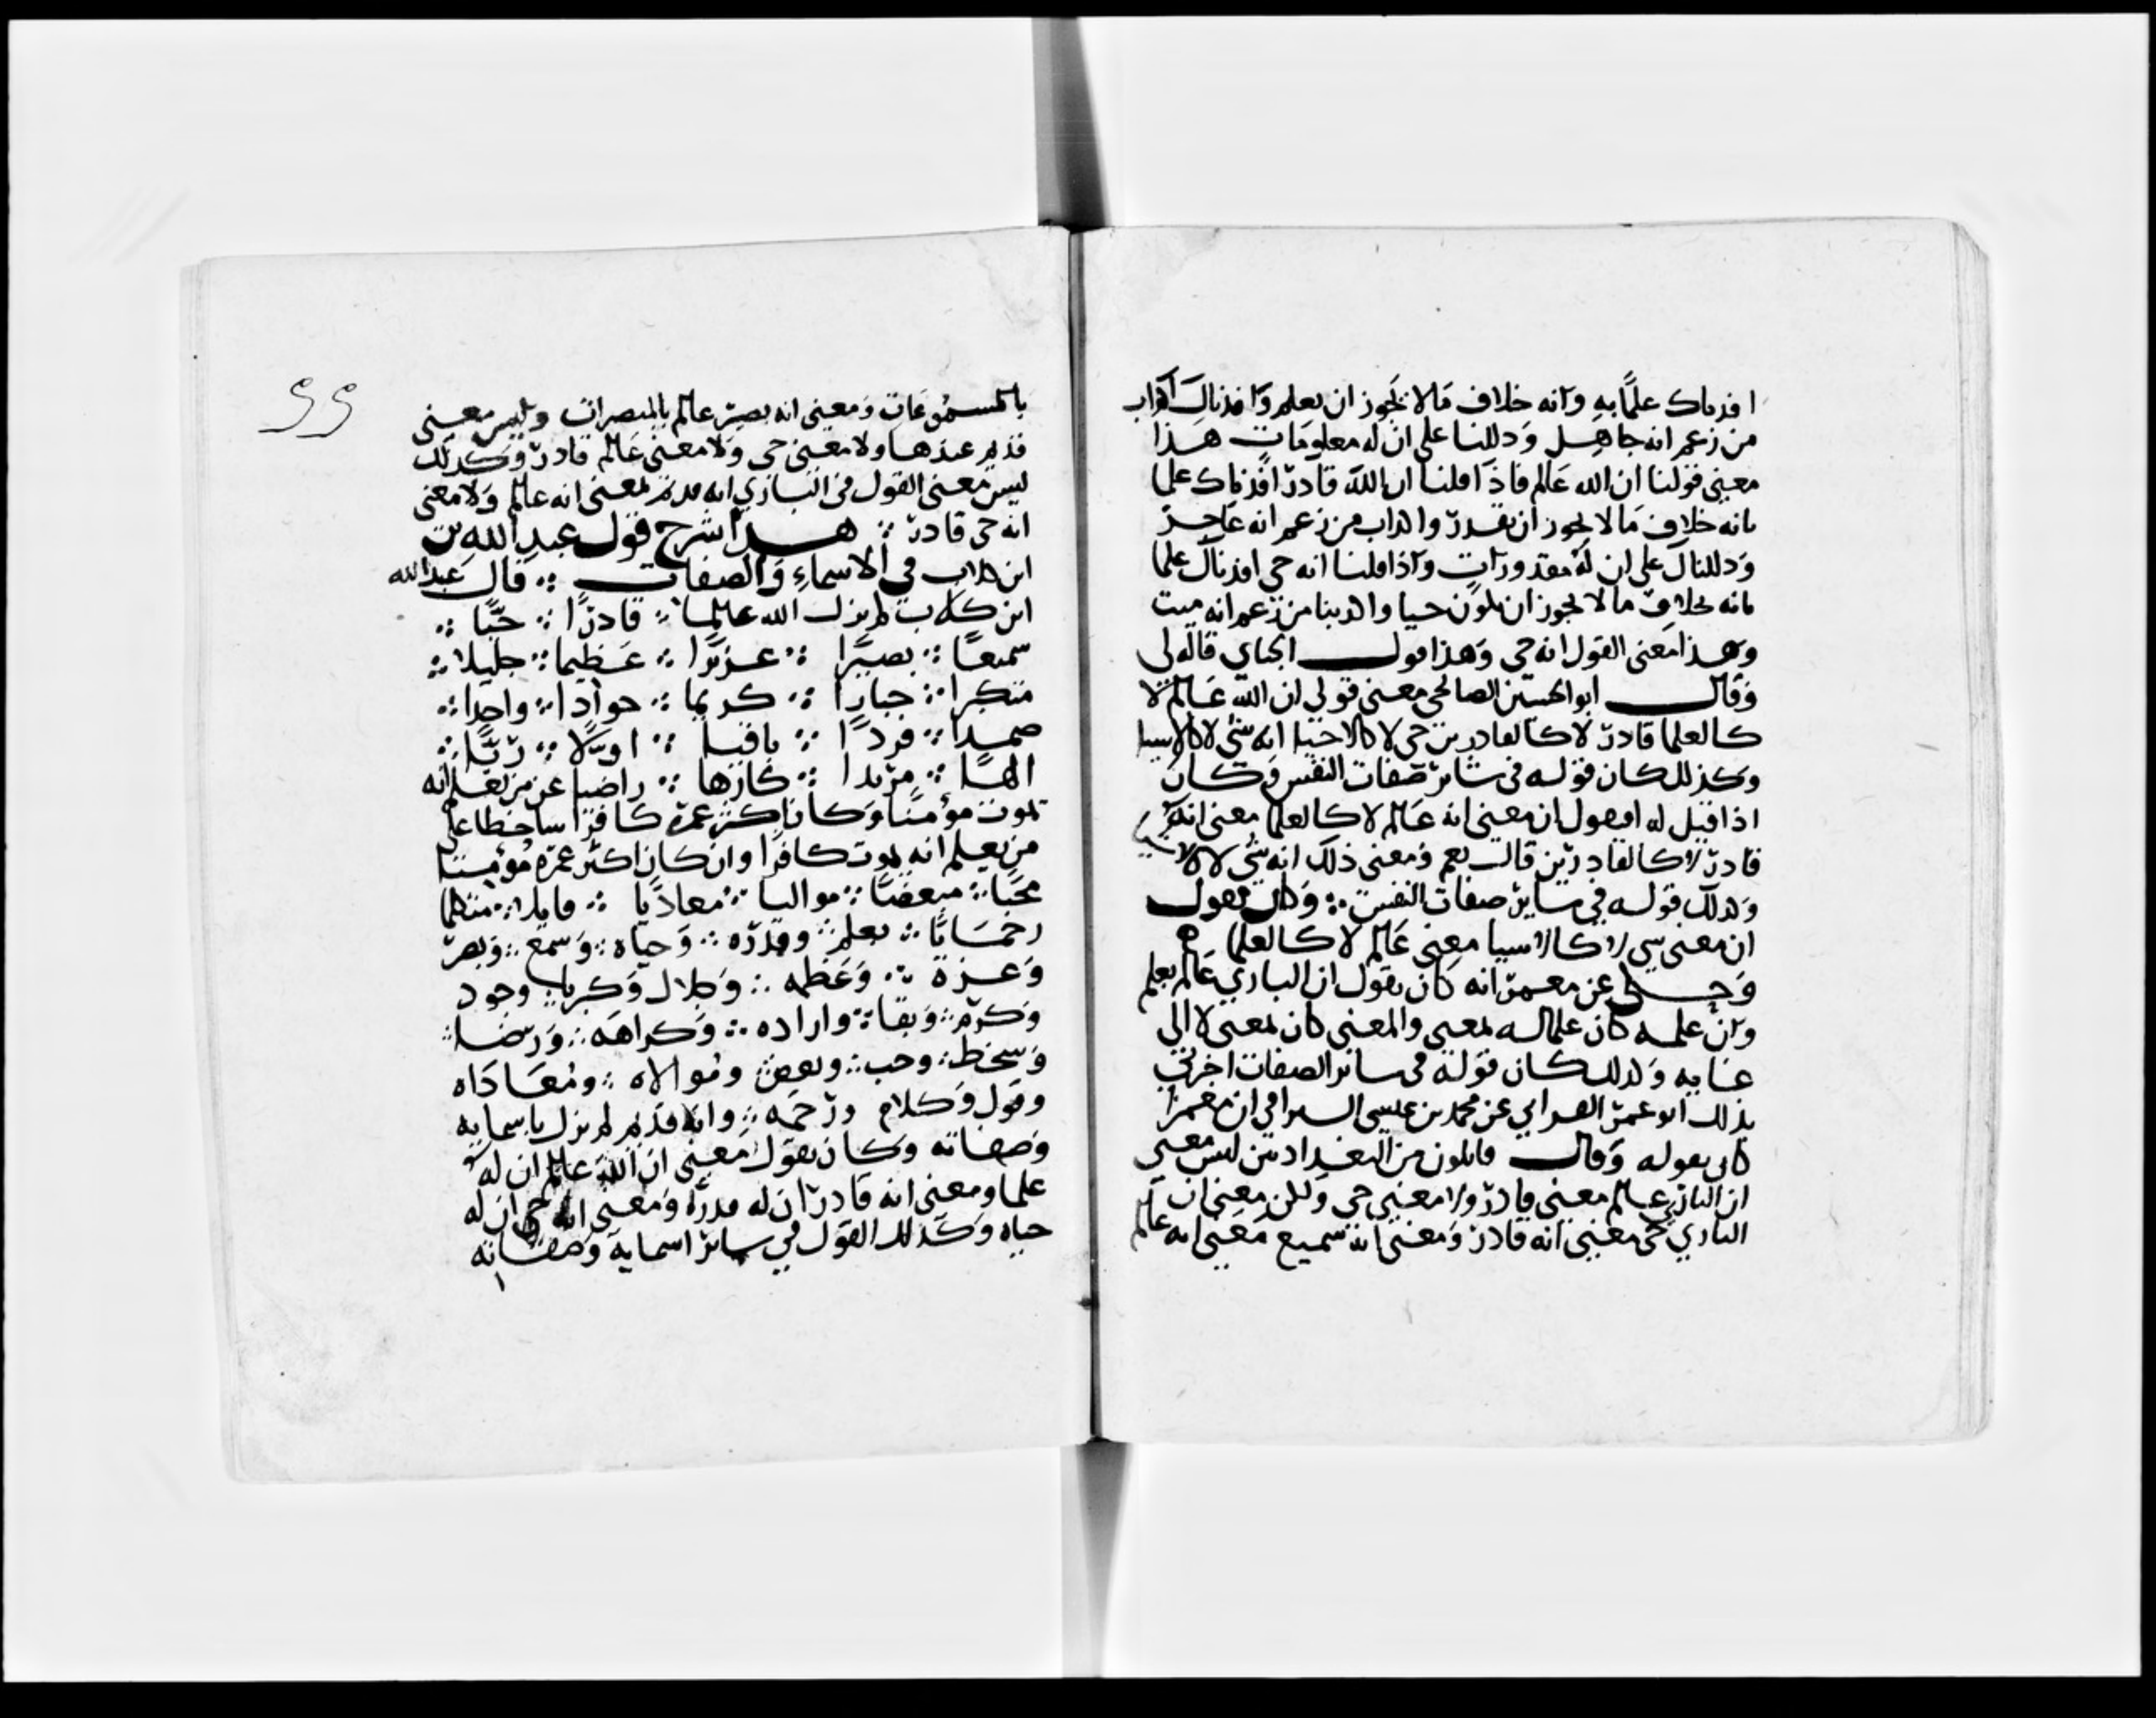 افدناك علمًا به وانه خلاف مالا يجوز ان يعلم وافدناك اكذاب
من زعم انه جاهل ودللنا على ان له معلومات هذا
معنى قولنا ان الله عالم فاذا قلنا ان الله قادر افدناك علما
بانه خلاف مالا يجوز ان يقدر واكذاب من زعم انه عاجز
ودللناك على ان له مقدورات واذا قلنا انه حى افدناك علما
بانه بخلاف مالا يجوز ان يكون حيا واكذبنا من زعم انه ميت
وهذا معنى القول انه حى وهذا قول الجباى قاله لى
وقال ابو الحسين الصالحى معنى قولى ان الله عالم لا
كالعلما قادر لا كالقادرين حى لا كالاحيا انه شى لا كالاشيا
وكذلك كان قوله فى سائر صفات النفس وكان
اذا قيل له افتقول ان معنى انه عالم لا كالعلما معنى انه
قادر لا كالقادرين قال نعم ومعنى ذلك انه شى لا كالاشيا
وكذلك قوله فى ساير صفات النفس وكان يقول
ان معنى شى لا كالاشيا معنى عالم لا كالعلما
وحكى عن معمر انه كان يقول ان البارى عالم بعلم
وان علمه كان علما له لمعنى والمعنى كان لمعنى لا الى
غايه وكذلك كان قوله فى سائر الصفات اخبرنى
بذلك ابو عمر الفراتى عن محمد بن عيسى السيرافى ان معمرا
كان يقوله وقال قائلون من البغداديين ليس معنى
ان البارى عالم معنى قادر ولا معنى حى ولكن معنى ان
البارى حى معنى انه قادر ومعنى انه سميع معنى انه عالم
بالمسموعات ومعنى انه بصير عالم بالمبصرات وليس معنى
قديم عندها ولا معنى حى ولا معنى عالم قادر وكذلك
ليس معنى القول فى البارى انه قديم لمعنى انه عالم ولا معنى
انه حى قادر هذا شرح قول عبد الله بن
ابن كلاب فى الاسماء والصفات قال عبد الله
ابن كلاب لم يزل الله عالما قادرًا حيًا
سميعًا بصيرًا عزيزًا عظيما جليلا
متكبرا جبارًا كريما جوادا واحدا
صمدا فردًا باقيا اولًا ربًّا
الهًا مريدا كارها راضيا عن من يعلم انه
يموت مؤمنًا وكان اكثر عمره كافرا ساخطا على
من يعلم انه يموت كافرًا وان كان اكثر عمره مؤمنا
محبًا مبغضًا مواليا معاديا قايلا متكلما
رحمانًا بعلم وقدره وحياه وسمع وبصر
وعزة وعظمه وجلال وكبريا وجود
وكرم وبقا واراده وكراهه ورضا
وسخط وحب وبغض وموالاه ومعاداه
وقول وكلام ورحمه وانه قديم لم يزل باسمايه
وصفاته وكان يقول معنى ان الله عالم ان له
علما ومعنى انه قادر ان له قدرة ومعنى انه حى ان له
حياه وكذلك القول فى سائر اسمايه وصفاته